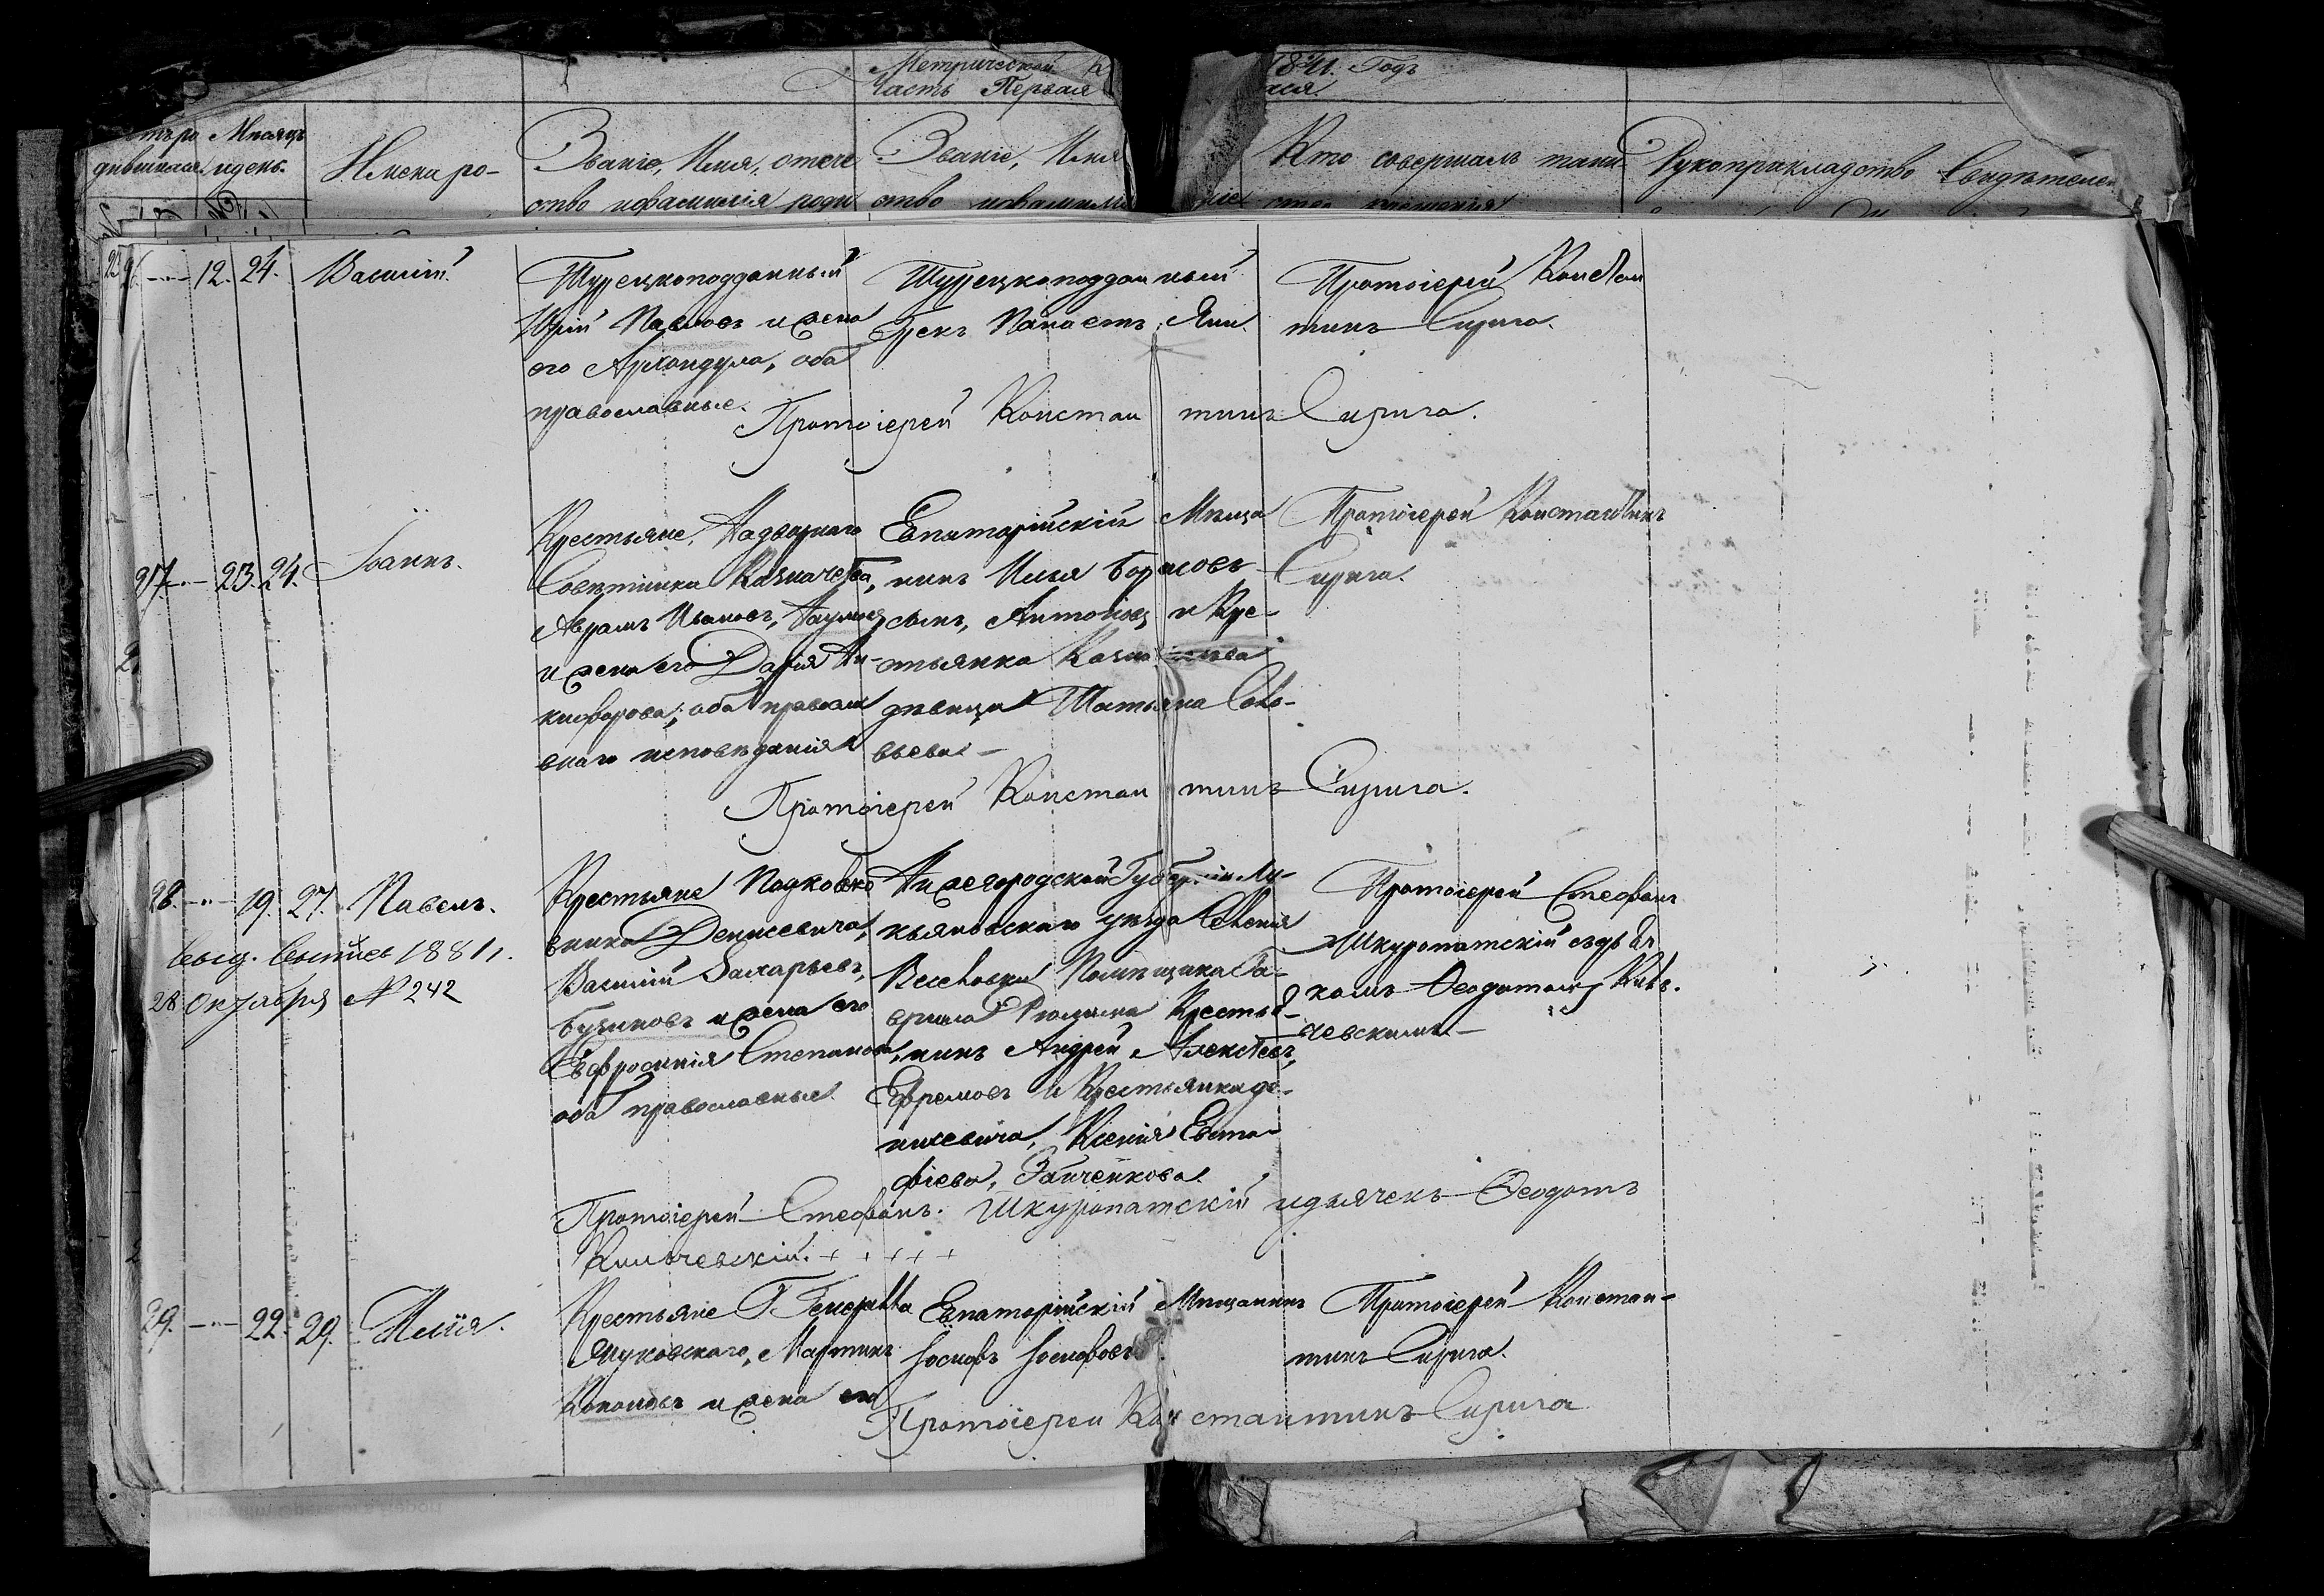 Метрической
Часть Первая
1841. Годъ
Мѣсяцъ
дившихся. и день.
Имена ро-
Званіе, Имя, отече
ство и фамилія роди
Званіе, Имя
ство и фамилія
Кто совершалъ таин
Рукоприкладство Свидѣтелей
12. 24. Василій.
Турецкоподданный
Юрій Павловъ и жена
его Архондула, оба
православные.
Турецкоподданный
Грекъ Яни.
Протоіерей Констан
тинъ Сирига.
Протоіерей Константинъ Сирига.
27. 23. 24. Іоаннъ.
Крестьяне, Надворнаго
Совѣтника Казначеева,
Аврамъ Ивановъ, Наумовъ
и жена его Дарія Ни-
кифорова, оба православ
внаго исповѣданія
Евпаторійскій Мѣща
нинъ Илья Борисовъ
сынъ, Антоновъ и Кре-
стьянка
дѣвица Татьяна Соло-
вьева
Протоіерей Константинъ
Сирига.
Протоіерей Константинъ Сирига.
28. 19. 27. Павелъ.
1881 г.
28 Октября № 242
Крестьяне Подполко
вника Денисевича,
Василій Захарьевъ,
Бузиновъ и жена его
Евфросинія Степанова,
оба православные.
Нижегородской Губерніи Лу-
кьяновскаго уѣзда Селенія
Помѣщика Га-
врила Крестья-
нинъ Андрей Алексѣевъ,
Ефремовъ и Крестьянка де-
нисевича, Ксенія Евста-
фіева, Зайченкова.
Протоіерей Стефанъ
Шкуропатскій съ дья
комъ Феодотомъ Киль-
чевскимъ
Протоіерей Стефанъ Шкуропатскій и дьячекъ Феодотъ
Кильчевскій. + + + + +
29. 22. 29. Илія.
Крестьяне Г. Генерала
Жуковскаго, Мартинъ
Кононовъ и жена его
Евпаторійскій Мѣщанинъ
Іосифъ Іосифовъ
Протоіерей Констан-
тинъ Сирига.
Протоіерей Константинъ Сирига